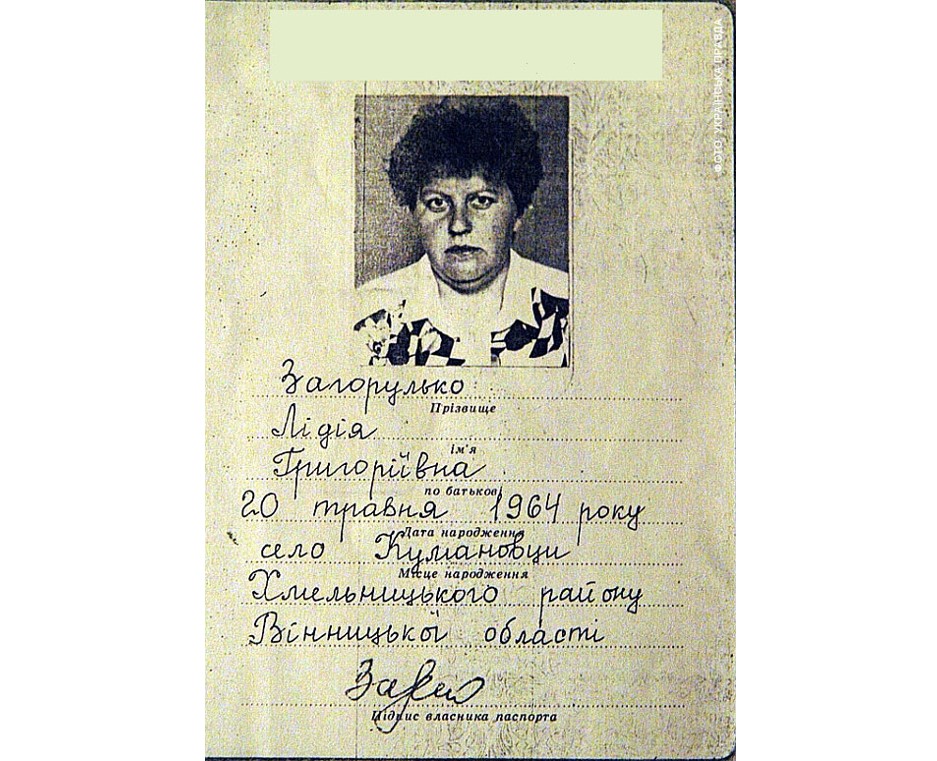 ФОТО: УКРАЇНСЬКА ПРАВДА
Загорулько
Прізвище
Лідія
ім'я
Григоріївна
по батькові
20 травня 1964 року
Дата народження
село Кумановци
Місце народження
Хмельницького району
Вінницької області
Підпис власника паспорта